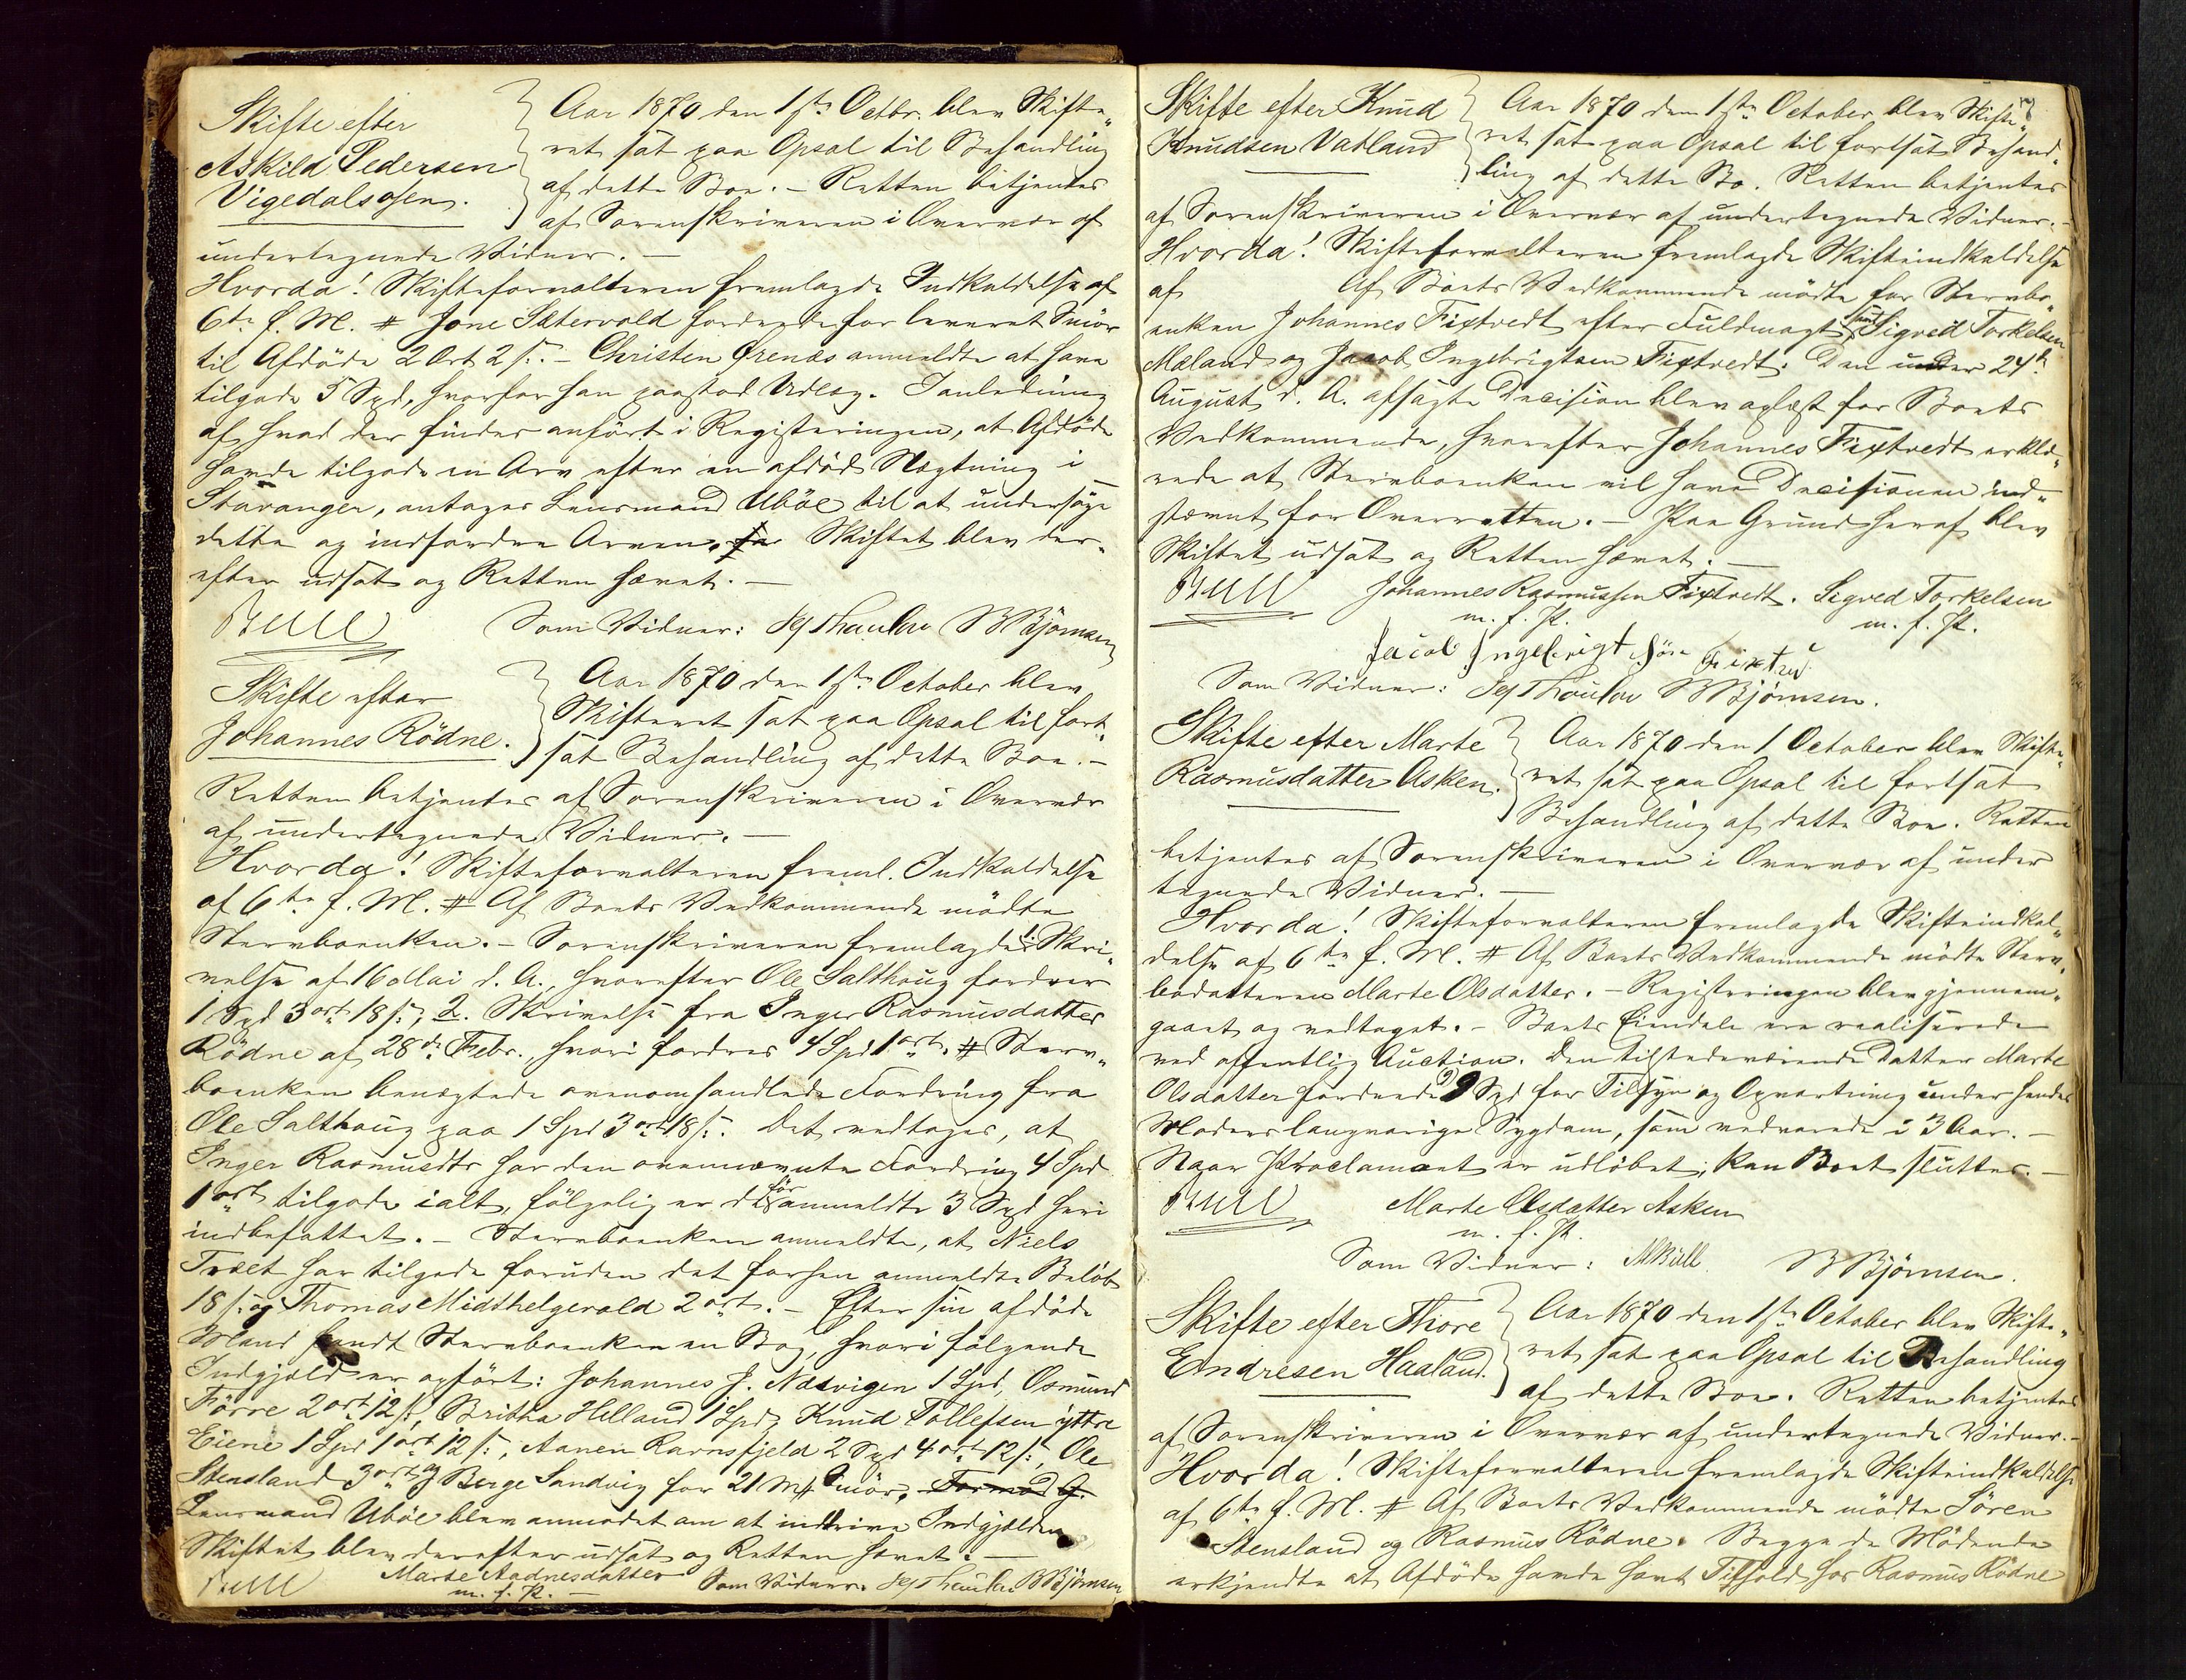 Skifte efter
Askild Pedersen
Vigedalsosen.
Aar 1870 den 1ste Octbr. blev Skifte„
ret sat paa Opsal til Behandling
af dette Boe. – Retten betjentes
af Sorenskriveren i Overvær af
undertegnede Vidner. —
Hvorda! Skifteforvalteren fremlagde Indkaldelse af
6te f. M. # Jone Sætervold fordrede for leveret Smör
til Afdöde 2 Ort 2 s. – Christen Ørenæs anmeldte at have
tilgode 5 Spd, hvorfor han paastod Udlæg. I anledning
af hvad der findes anfört i Registeringen, at Afdöde
havde tilgode en Arv efter en afdöd Slægtning i
Stavanger, antages Lensmand Uböe til at undersöge
dette og indfordre Arven. Skiftet blev der„
efter udsat og Retten hævet. —
Bull Som Vidner: Sej Thaulow B Björnsen
Skifte efter
Johannes Rödne.
Aar 1870 den 1ste October blev
Skifteret sat paa Opsal til fort„
sat Behandling af dette Boe. –
Retten betjentes af Sorenskriveren i Overvær
af undertegnede Vidner. —
Hvorda! Skifteforvalteren freml. Indkaldelse
af 6te f. M. # Af Boets Vedkommende mödte
Stervboenken. – Sorenskriveren fremlagde 1. Skri„
velse af 16 Mai d. A., hvorefter Ole Salthoug fordrer
1 Spd 3 ort 18 s., 2. Skrivelse fra Inger Rasmusdatter
Rödne af 28de Febr., hvori fordres 4 Spd 1 ort. # Sterv„
boenken benægtede ovenomhandlede Fordring fra
Ole Salthoug paa 1 Spd 3 ort 18 s. Det vedtoges, at
Inger Rasmusdtr har den ovennævnte Fordring 4 Spd
1 ort tilgode ialt, fölgelig er de för anmeldte 3 Spd heri
indbefattet. – Stervboenken anmeldte, at Niels
Træet har tilgode foruden det forhen anmeldte Belöb
18 s. og Thomas Midthelgevold 2 ort. – Efter sin afdöde
Mand fandt Stervboenken en Bog, hvori fölgende
Indgjæld er opfört: Johannes J. Næsvigen 1 Spd, Osmund
Förre 2 ort 12 s., Britha Helland 1 Spd, Knud Tollefsen yttre
Eiene 1 Spd 1 ort 12 s., Aanen Ravnsfjeld 2 Spd 4 ort 12 s., Ole
Stensland 3 ort og Berge Sandvig for 21 M# Smör. Formod G.
Lensmand Uböe blev anmodet om at inddrive Indgjælden
Skiftet blev derefter udsat og Retten hævet. —
Bull Marte Aadnesdatter Som Vidner: Sej Thaulow B Björnsen
m. f. P. —
Skifte efter Knud
Knudsen Vatland
Aar 1870 den 1ste October blev Skifte„
ret sat paa Opsal til fortsat Behand„
ling af dette Bo. Retten betjentes
af Sorenskriveren i Overvær af undertegnede Vidner. –
Hvorda! Skifteforvalteren fremlagde Skifteindkaldelse
af Af Boets Vedkommende mödte for Stervbo„
enken Johannes Fixtvedt efter Fuldmagt, samt Sigved Torkelsen
Mæland og Jacob Ingebrigtsen Fixtvedt. Den under 24de
August d. A. afsagte Decision blev oplæst for Boets
Vedkommende, hvorefter Johannes Fixtvedt erklæ„
rede at Stervboenken vil have Decisionen ind„
stævnt for Overretten. – Paa Grund heraf blev
Skiftet udsat og Retten hævet. —
Bull Johannes Rasmussen Fixtvedt. Sigved Torkelsen
m. f. P. m. f. P.
Jacob Ingebrigt Sön Fixtved
Som Vidner: Sej Thaulow B Björnsen.
Skifte efter Marte
Rasmusdatter Asken.
Aar 1870 den 1 October blev Skifte„
ret sat paa Opsal til fortsat
Behandling af dette Boe. Retten
betjentes af Sorenskriveren i Overvær af under
tegnede Vidner. —
Hvorda! Skifteforvalteren fremlagde Skifteindkal„
delse af 6te f. M. # Af Boets Vedkommende mödte Sterv„
bodatteren Marte Olsdatter. – Registeringen blev gjennem„
gaaet og vedtaget. – Boets Eiendele ere realiserede
ved offentlig Auction. Den tilstedeværende Datter Marte
Olsdatter fordrede 9 Spd for Tilsyn og Opvartning under hendes
Moders langvarige Sygdom, som vedvarede i 3 Aar. –
Naar Proclamaet er udlöbet, kan Boet sluttes. —
Bull Marte Olsdatter Asken
m. f. P.
Som Vidner: M Bull B Björnsen.
Skifte efter Thore
Endresen Haaland.
Aar 1870 den 1ste October blev Skifte„
ret sat paa Opsal til Behandling
af dette Boe. Retten betjentes
af Sorenskriveren i Overvær af undertegnede Vidner. –
Hvorda! Skifteforvalteren fremlagde Skifteindkaldelse
af 6te f. M. # Af Boets Vedkommende mödte Sören
Stensland og Rasmus Rödne. Begge de Mödende
erkjendte at Afdöde havde havt Tilhold hos Rasmus Rödne